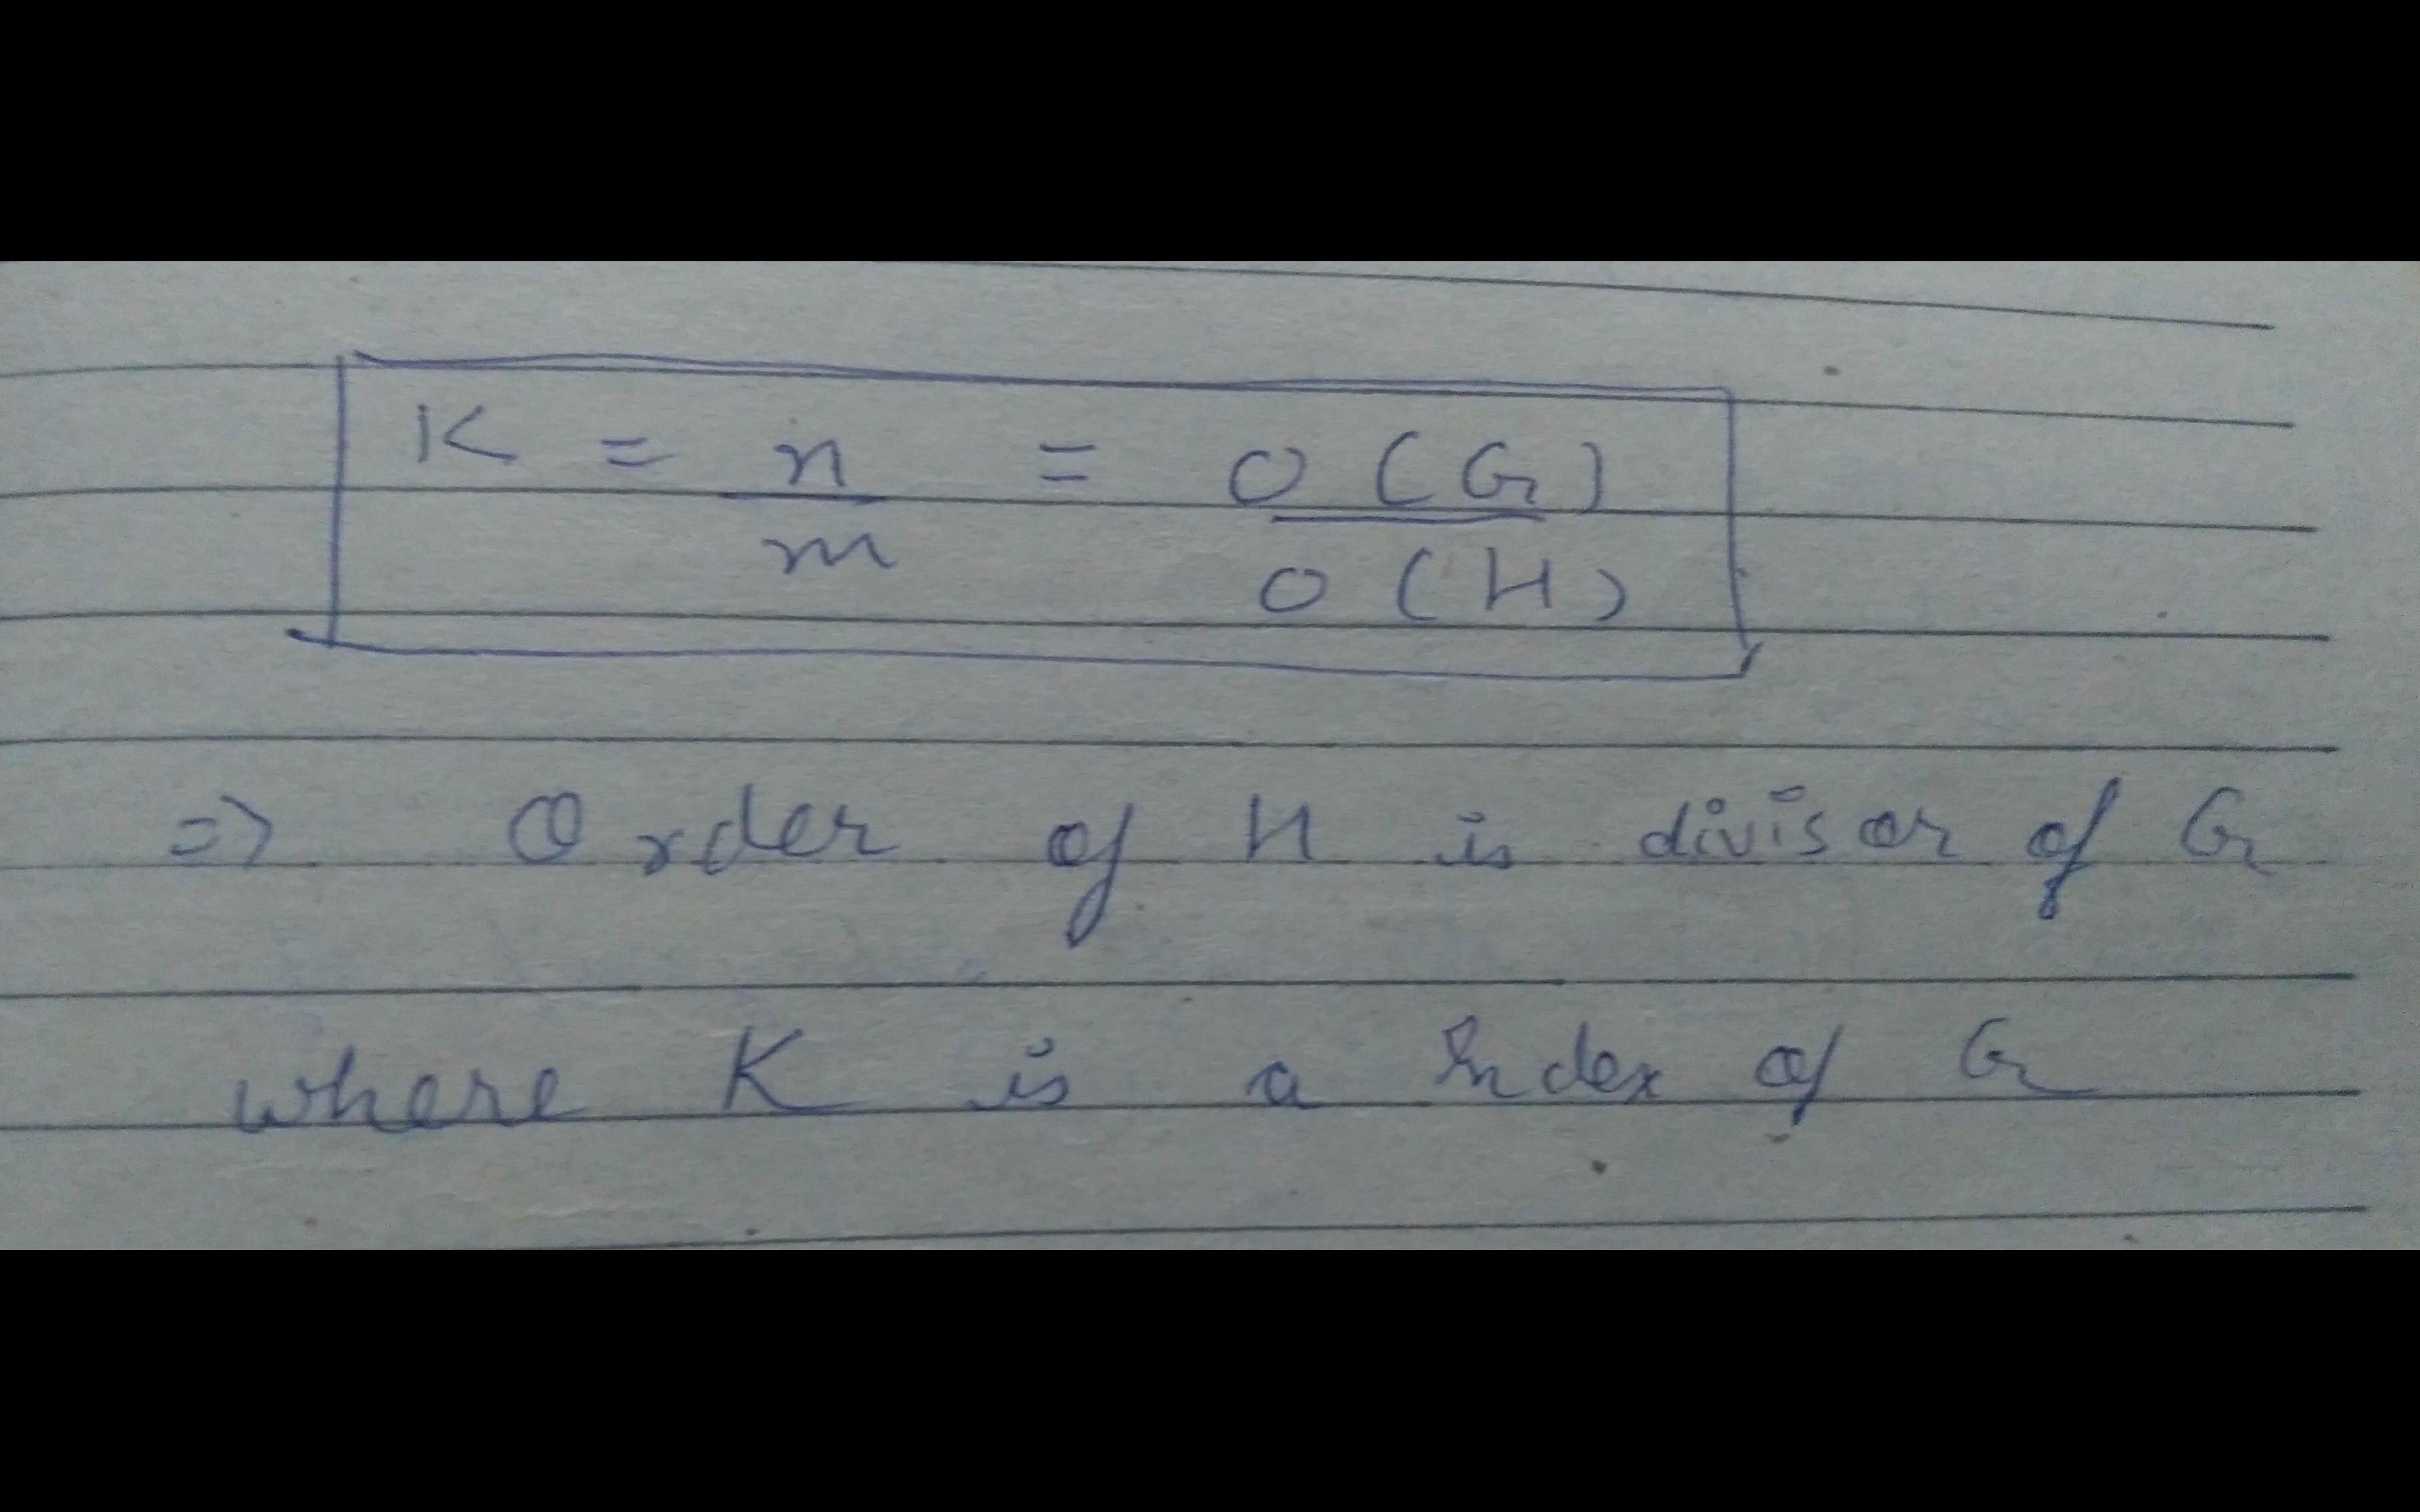 K = n/m = O(G)/O(H)
=> Order of H is divisor of G
where K is a Index of G